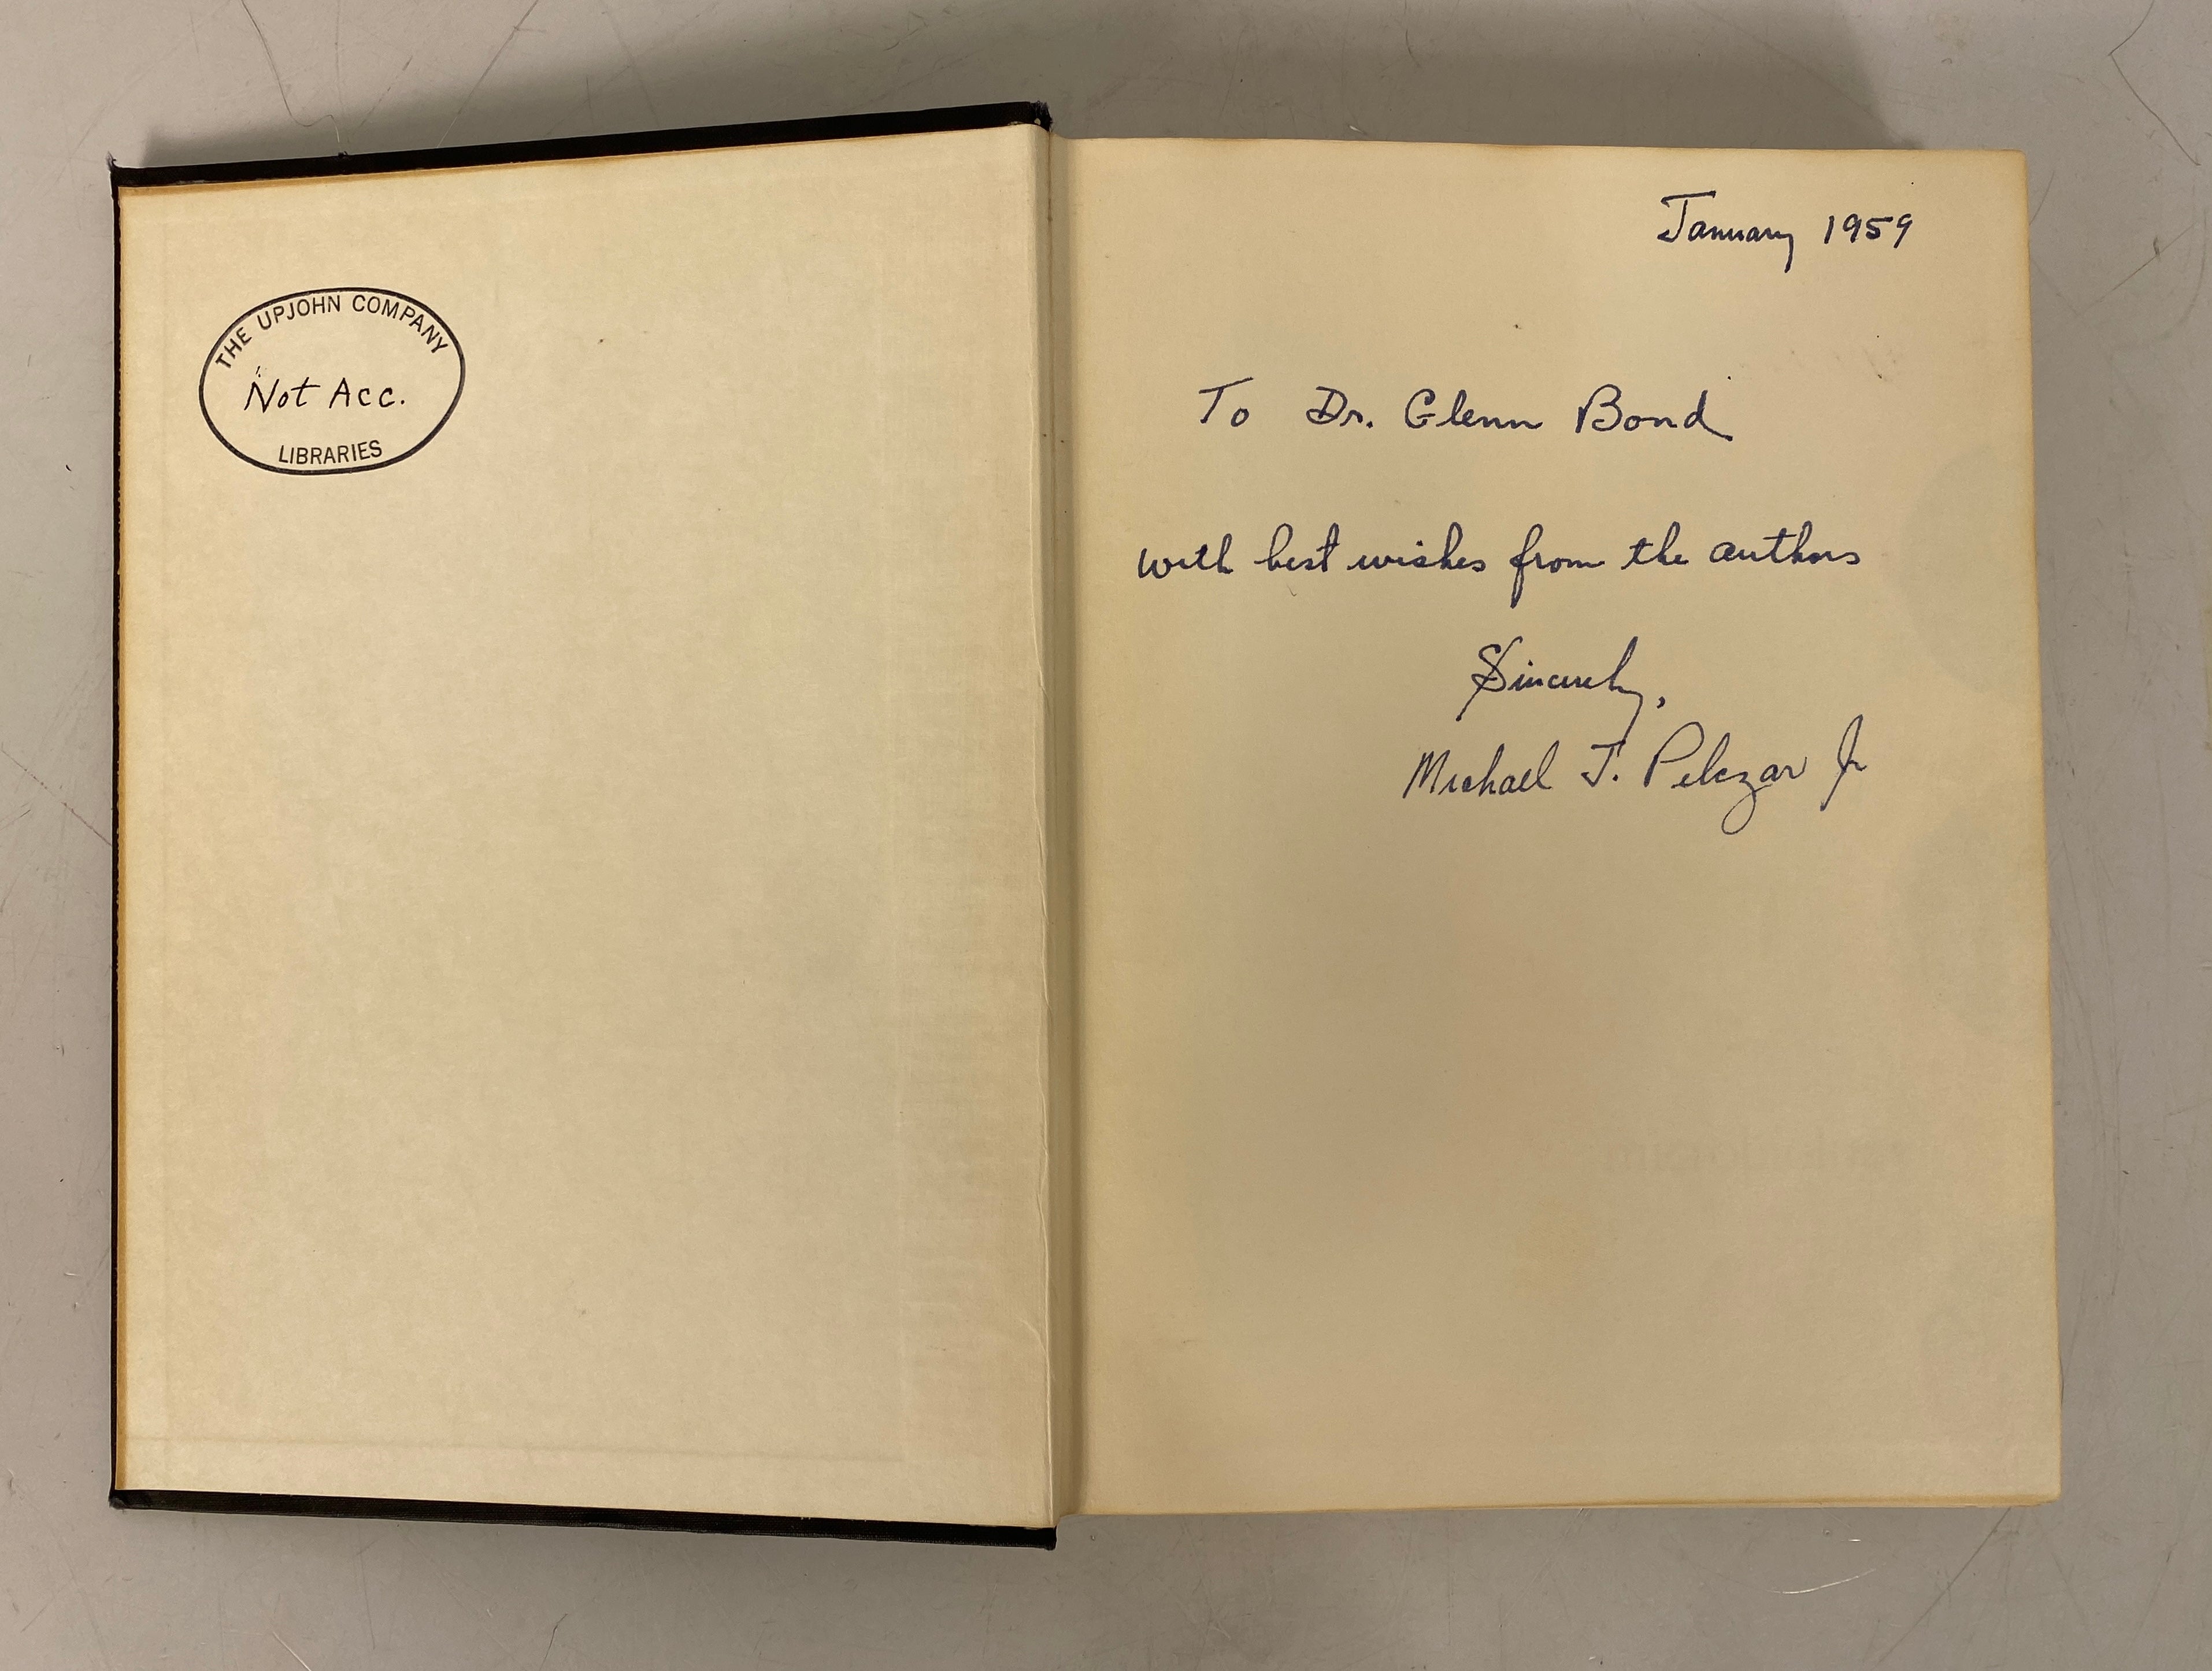 THE UPJOHN COMPANY
Not Acc.
LIBRARIES
January 1959
To Dr. Glenn Bond
with best wishes from the authors
Sincerely,
Michael J. Pelczar Jr